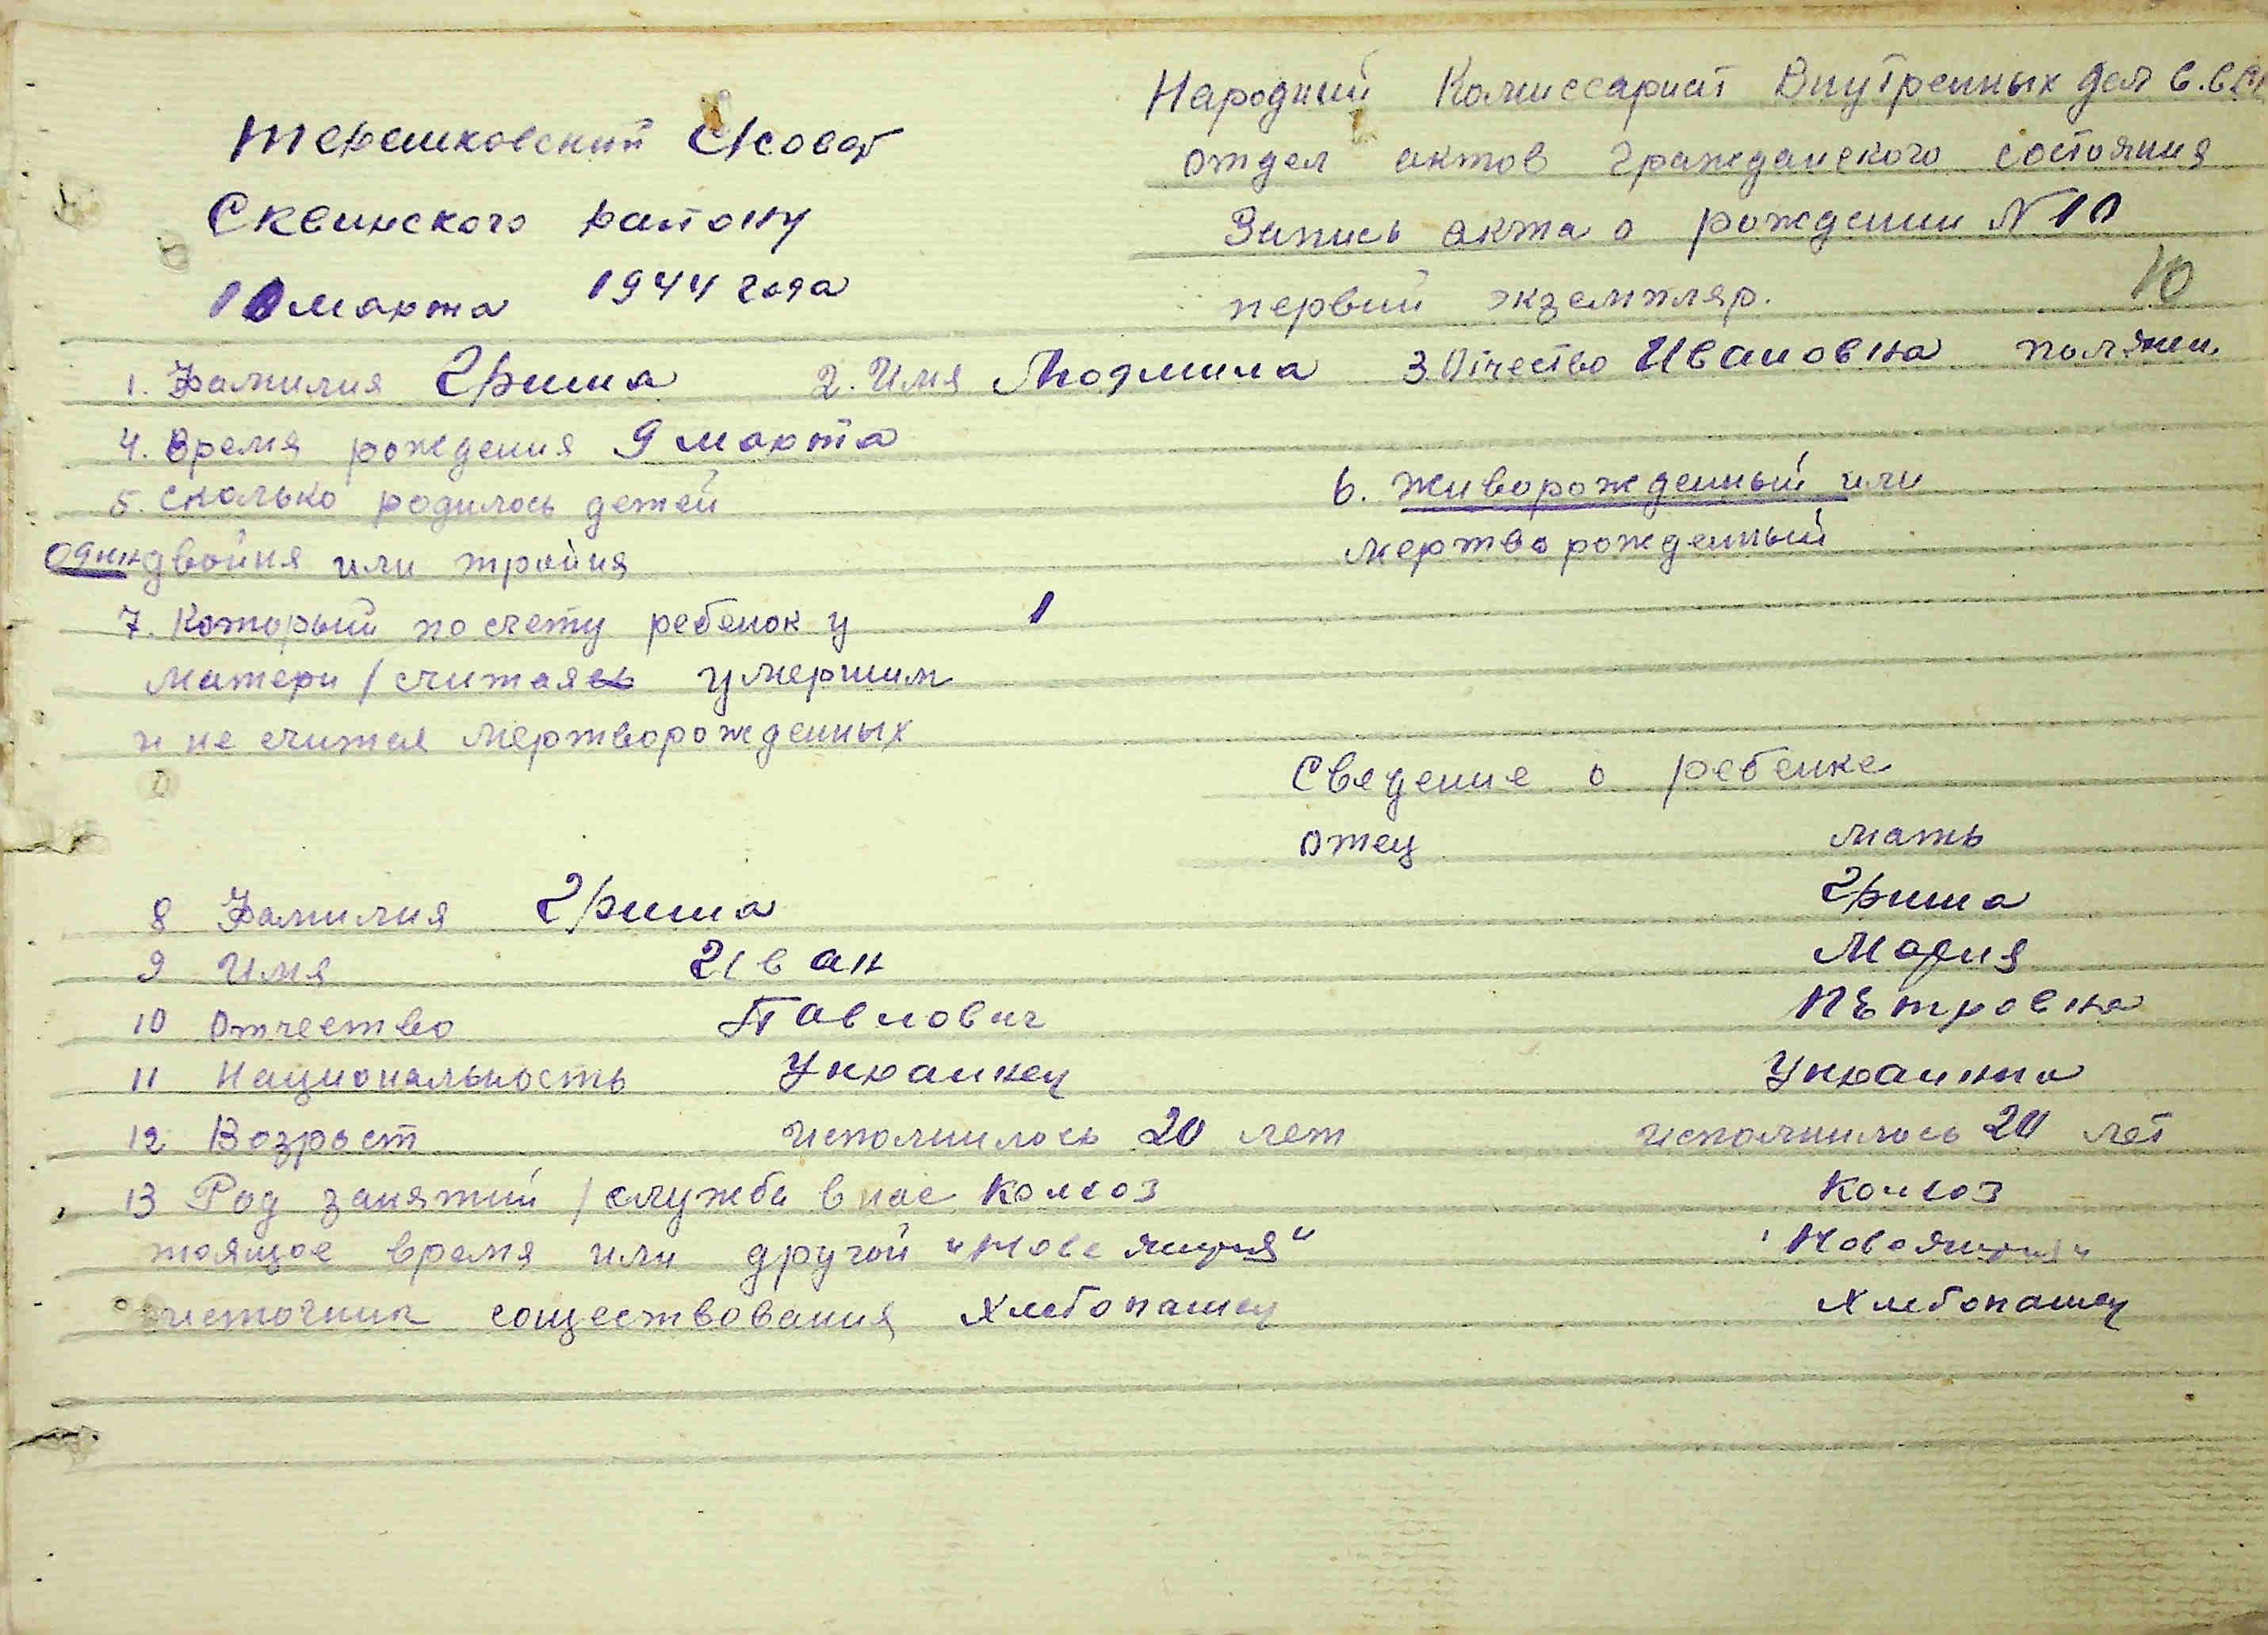 Терешковский с/совет
Сквинского району
10 марта 1944 года
Народний Комиссариат Внутренных дел
отдел актов гражданского состояния
Запись акта о рождении N 10
10
первий экземпляр.
1. Фамилия Гриша 2. Имя Людмила 3. Отчество Ивановна пол жен.
4. Время рождения 9 марта
5. сколько родилось детей
один двойня или тройня
6. живорожденный или
мертворожденный
7. Который по счету ребенок у 1
матери / считаясь умершим
и не считая мертворожденных
Сведение о ребенке
отец мать
8 Фамилия Гриша Гриша
9 Имя Иван Мария
10 Отчество Павлович Петровна
11 Национальность Украинец Украинка
12 Возраст исполнилось 20 лет исполнилось 20 лет
13 Род занятий / служба в нас Колхоз Колхоз
тоящое время или другой
источник существования Хлебопашец Хлебопашец